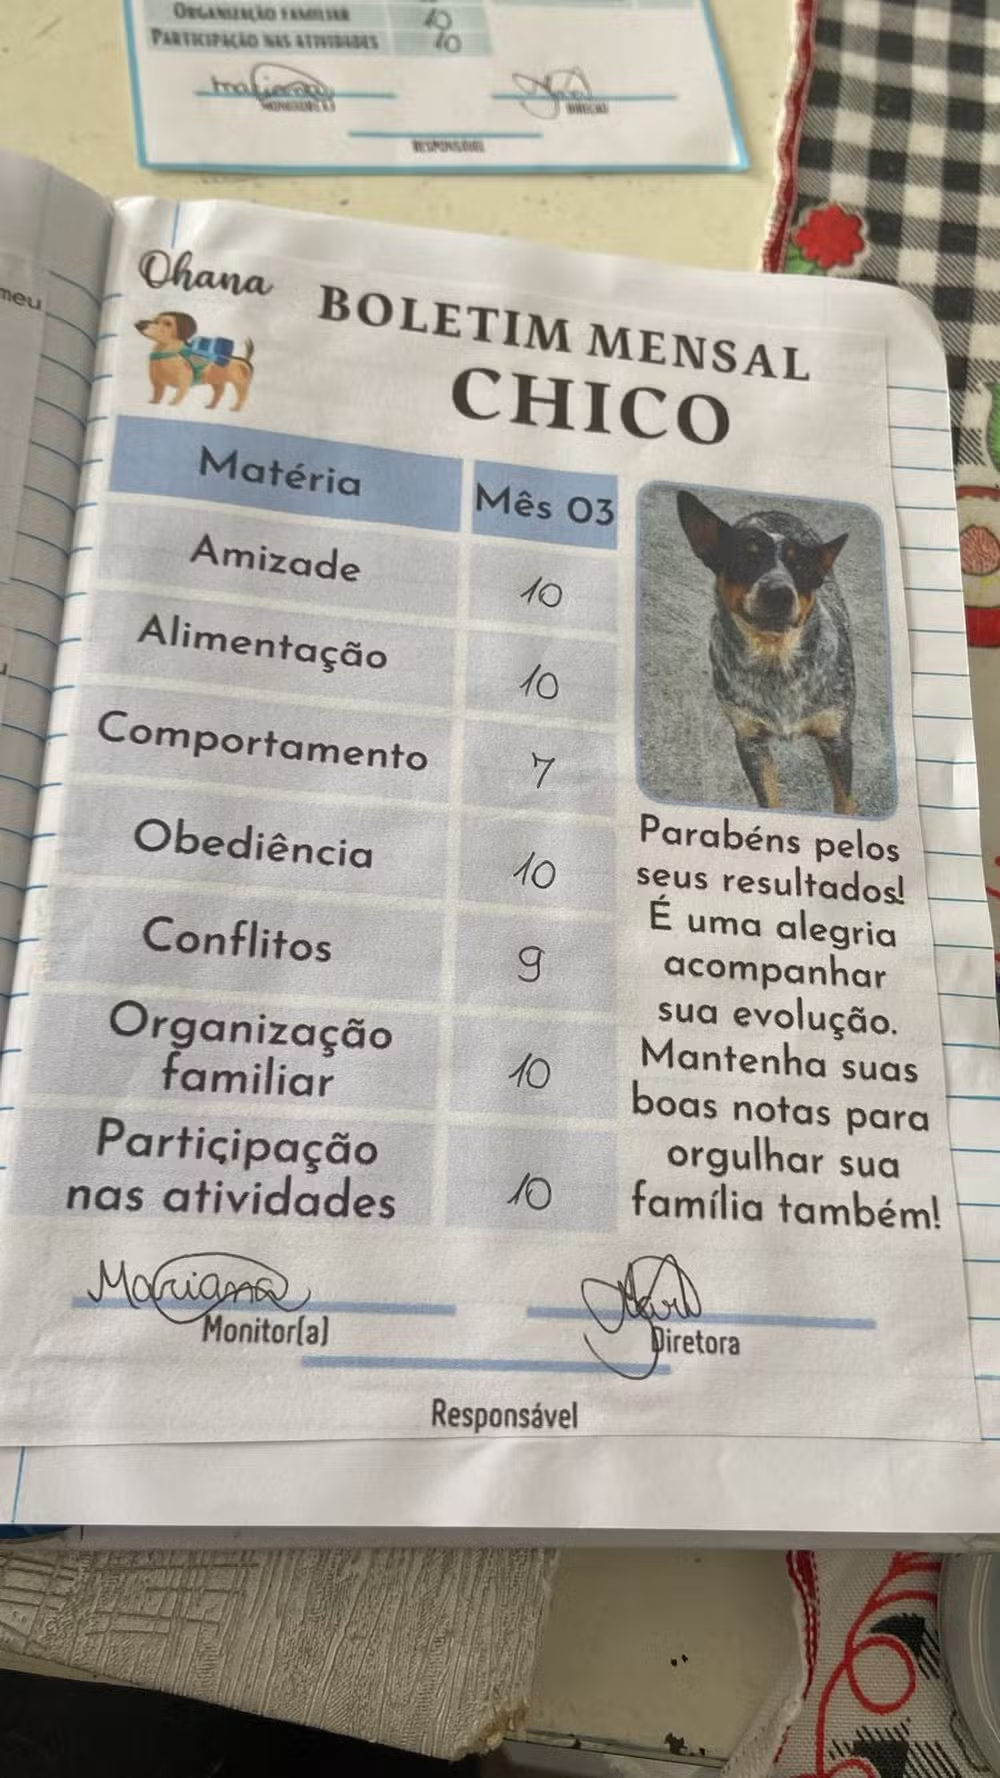 ORGANIZAÇÃO FAMILIAR 10
PARTICIPAÇÃO NAS ATIVIDADES 10
Mariana
MONITOR(A)
RESPONSÁVEL
meu
Ohana
BOLETIM MENSAL
CHICO
Matéria Mês 03
Amizade 10
Alimentação 10
Comportamento 7
Obediência 10
Conflitos 9
Organização
familiar 10
Participação
nas atividades 10
Parabéns pelos
seus resultados!
É uma alegria
acompanhar
sua evolução.
Mantenha suas
boas notas para
orgulhar sua
família também!
Mariana
Monitor(a)
Diretora
Responsável